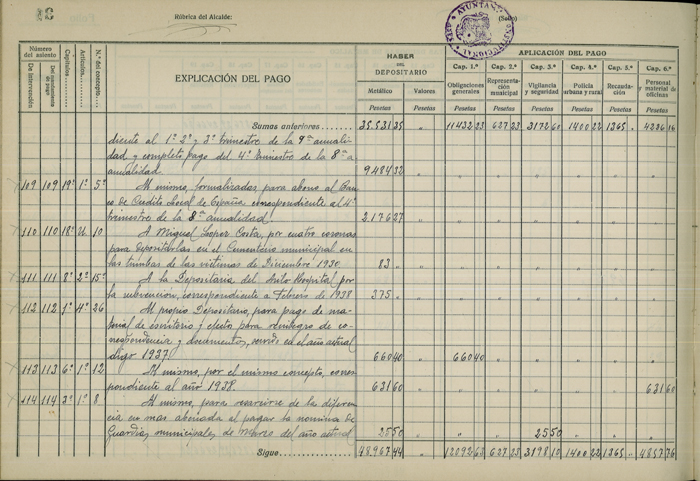 Rúbrica del Alcalde:
(Sello)
AYUNTAMIENTO
Número del asiento
De intervención
Del mandamiento de pago
Capítulos
Artículos
N.º del concepto
EXPLICACIÓN DEL PAGO
HABER DEL DEPOSITARIO
Metálico
Valores
Pesetas
Pesetas
APLICACIÓN DEL PAGO
Cap. 1.º Cap. 2.º Cap. 3.º Cap. 4.º Cap. 5.º Cap. 6.º
Obligaciones generales
Representación municipal
Vigilancia y seguridad
Policía urbana y rural
Recaudación
Personal y material de oficinas
Pesetas Pesetas Pesetas Pesetas Pesetas Pesetas
Sumas anteriores 35.531 35 " 11432 23 627 23 3172 60 1400 22 1365 " 4226 16
diente al 1º 2º y 3º trimestre de la 9ª anuali-
dad, y completo pago del 4º trimestre de la 8ª
anualidad 9484 32
109 109 19º 1º 5º Al mismo, formalizadas para abono al Ban-
co de Crédito Local de España correspondiente al 4º
trimestre de la 8ª anualidad 2176 27
110 110 18º U. 10 A Miguel Lopez Costa, por cuatro coronas
para depositarlas en el Cementerio municipal en
las tumbas de las victimas de Diciembre 1930 83 "
111 111 8º 2º 15º A la Depositaria del Hospital por
la subvencion, correspondiente a Febrero de 1938 375 "
112 112 1º 4º 26 Al propio Depositario, para pago de ma-
terial de escritorio y efectos para reintegro de co-
rrespondencia y documentos, en el año actual
digo 1937 660 40 " 660 40
113 113 6º 1º 12 Al mismo, por el mismo concepto, corres-
pondiente al año 1938 631 60 " 631 60
114 114 3º 1º 8 Al mismo, para resarcirse de la diferen-
cia en mas abonada al pagar la nomina de
Guardias municipales de Marzo del año actual 25 50 " 25 50
Sigue 48967 44 12092 63 627 23 3198 10 1400 22 1365 " 4857 76